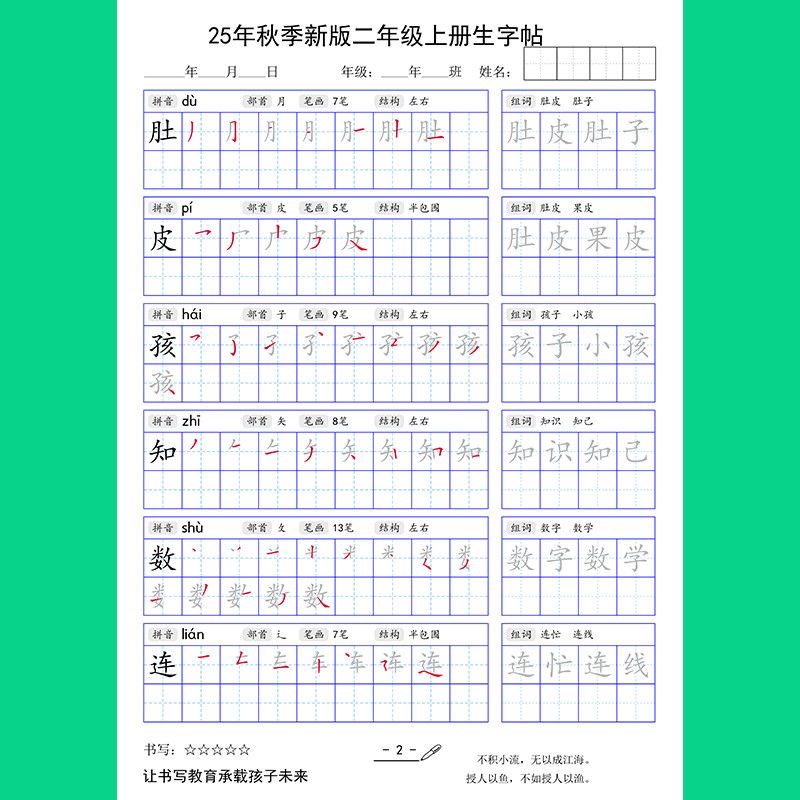 25年秋季新版二年级上册生字帖
______年____月____日 年级：____年____班 姓名：
拼音 dù 部首 月 笔画 7笔 结构 左右 组词 肚皮 肚子
肚 肚皮肚子
拼音 pí 部首 皮 笔画 5笔 结构 半包围 组词 肚皮 果皮
皮 肚皮果皮
拼音 hái 部首 子 笔画 9笔 结构 左右 组词 孩子 小孩
孩 孩子小孩
孩
拼音 zhī 部首 矢 笔画 8笔 结构 左右 组词 知识 知己
知 知识知己
拼音 shù 部首 攵 笔画 13笔 结构 左右 组词 数字 数学
数 数字数学
数
拼音 lián 部首 辶 笔画 7笔 结构 半包围 组词 连忙 连线
连 连忙连线
书写：☆☆☆☆☆
让书写教育承载孩子未来
- 2 -
不积小流，无以成江海。
授人以鱼，不如授人以渔。